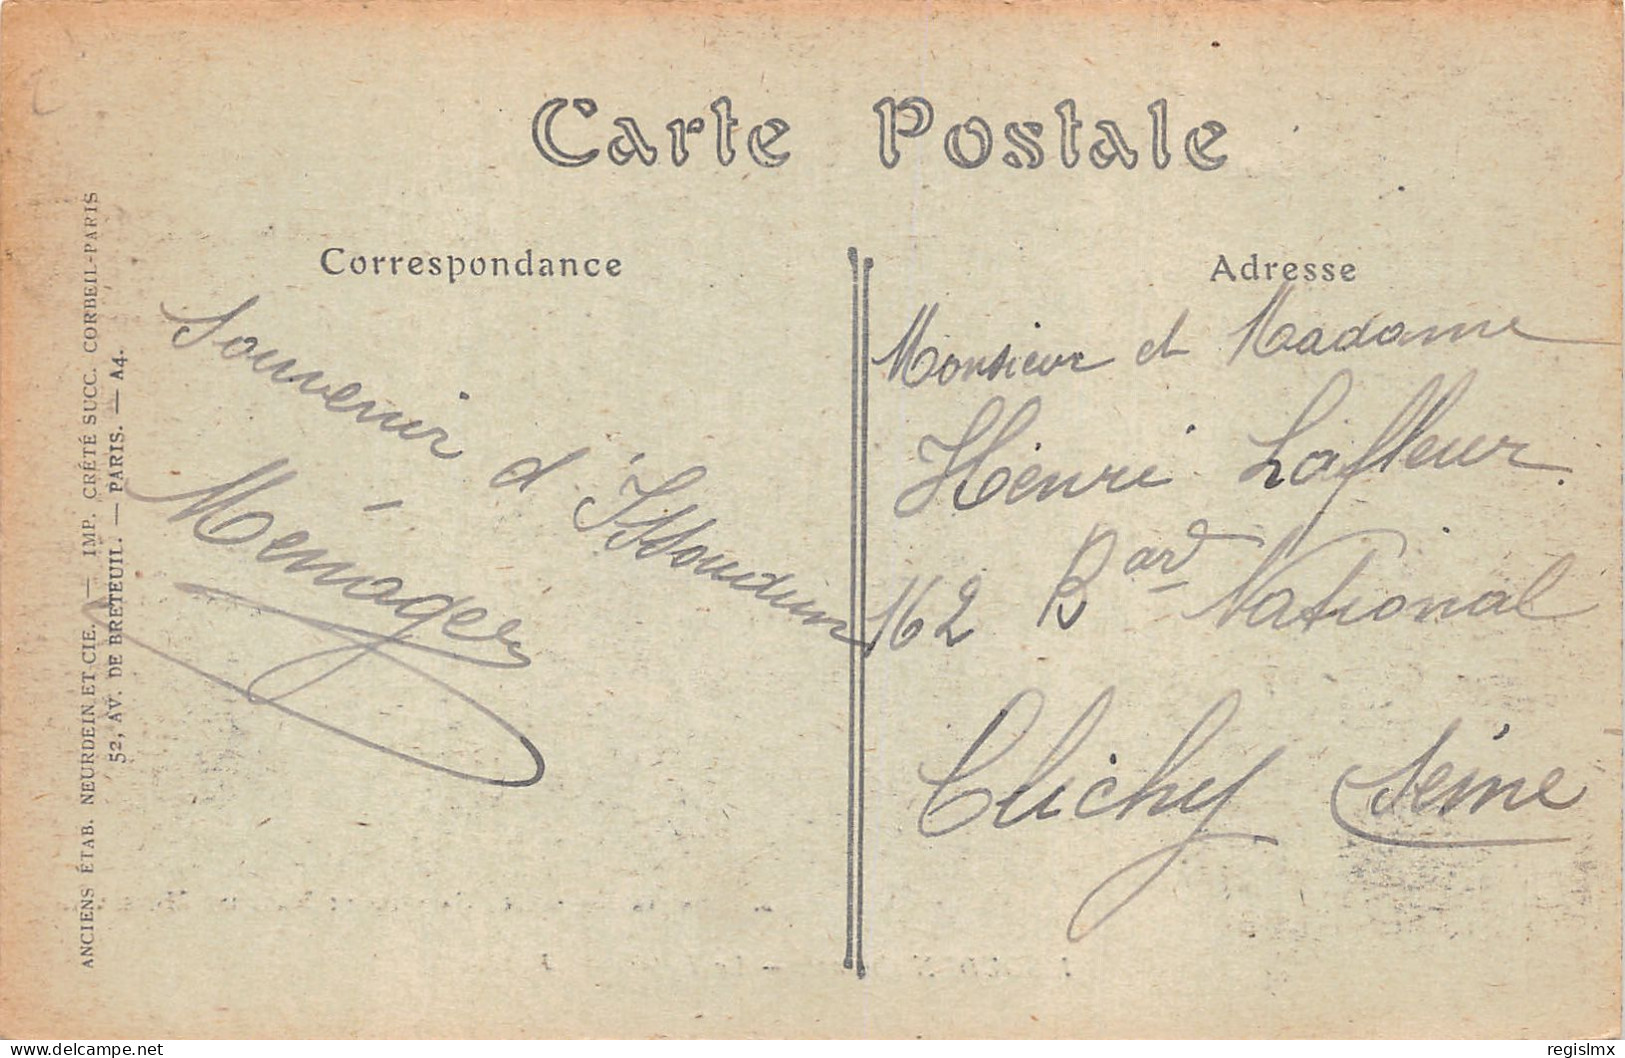 Carte Postale
Correspondance
Adresse
Souvenir d'Issoudun
Ménager
Monsieur et Madame
Henri Lafleur
162 Bard National
Clichy Seine
ANCIENS ÉTAB. NEURDEIN ET CIE. — IMP. CRÉTÉ SUCC. CORBEIL-PARIS
52, AV. DE BRETEUIL. — PARIS. — A4.
delcampe.net
regislmx